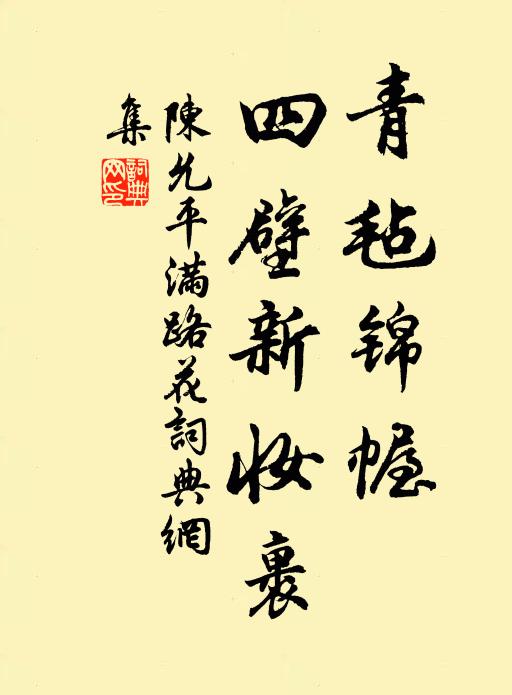 青毡锦幄
四壁新妆裹
陳允平满路花詞典網
集
詞典網印